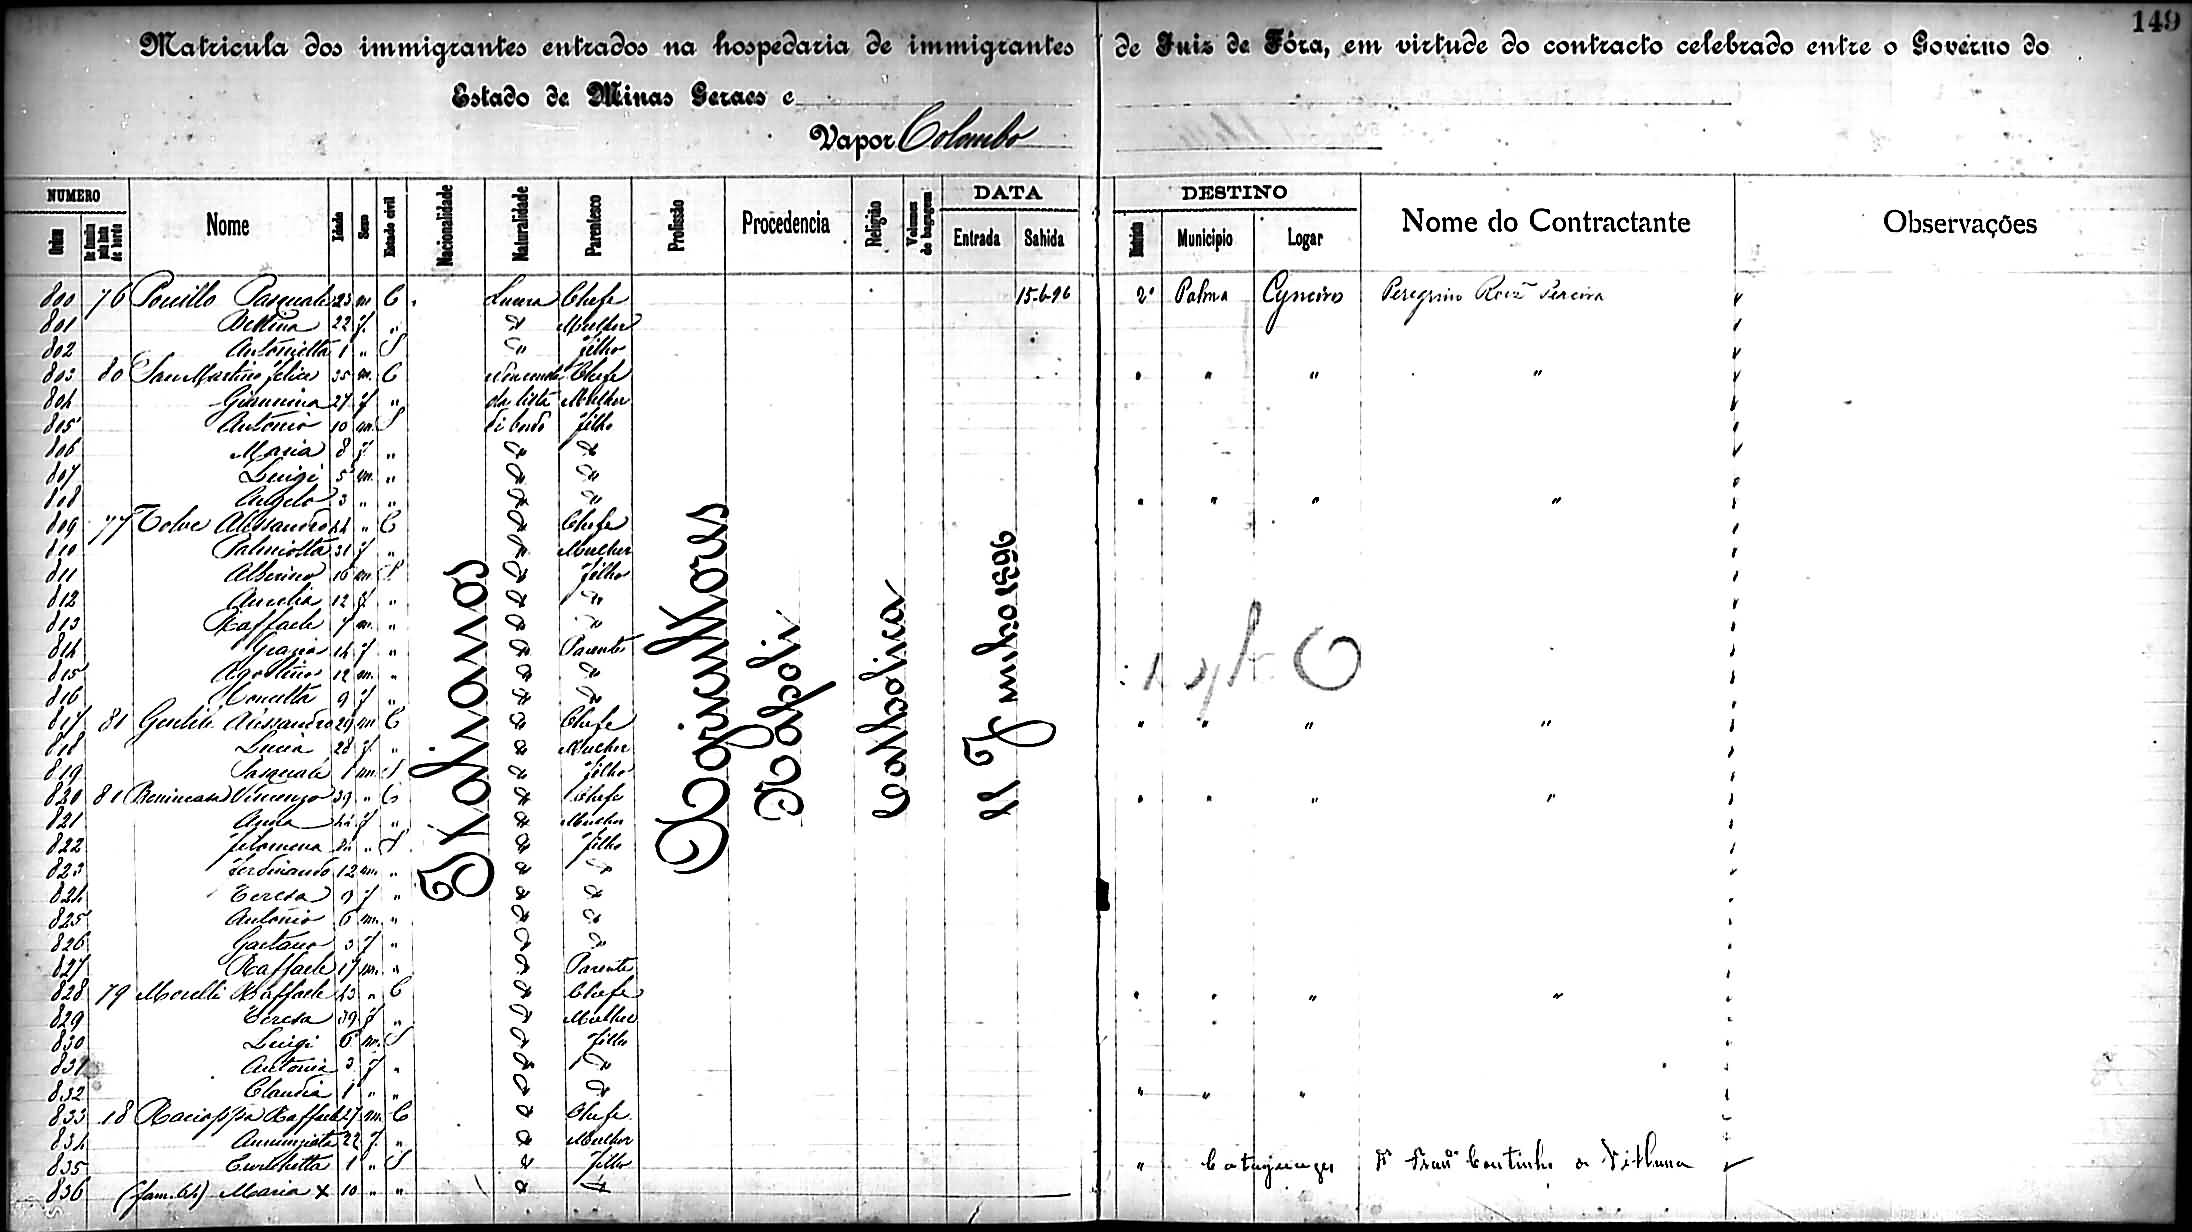 149
Matricula dos immigrantes entrados na hospedaria de immigrantes de Juiz de Fóra, em virtude do contracto celebrado entre o Governo do
Estado de Minas Geraes e
Vapor Colombo
NUMERO DATA DESTINO
Ordem De familia pela lista de bordo Nome Idade Sexo Estado civil Nacionalidade Naturalidade Parentesco Profissão Procedencia Religião Volumes de bagagem Entrada Sahida Districto Municipio Logar Nome do Contractante Observações
800 76 Pasquale 23 m C Chefe 15-6-96 2º Palma Cyneiros Peregrino Roiz Pereira
801 22 f. " Mulher
802 Antonietta 1 " S Filho
803 80 San Martino Felice 35 m. C Chefe " " " "
804 Giannina 27 f " da lista Mulher
805 Antonio 10 m. S di bordo Filho
806 Maria 8 f "
807 Luigi 5 m. "
808 Angelo 3 " " " " " "
809 77 Tolve Alessandro 44 " C Chefe
810 31 f " Mulher
811 16 m S Filho
812 Aurelia 12 f "
813 Raffaele 7 m. "
814 Grazia 14 f " Parente
815 Agostino 12 m. "
816 Concetta 9 f "
817 81 Gentile Alessandro 29 m C Chefe " " " "
818 Lucia 28 f " Mulher
819 Pasquale 1 m. S Filho
820 81 Benincasa Vincenzo 39 " C Chefe " " " "
821 Anna 44 f " Mulher
822 Filomena " S Filho
823 Ferdinando 12 m. "
824 Teresa 9 f "
825 Antonio 6 m. "
826 Gaetano 3 f "
827 Raffaele 17 m. " Parente
828 79 Morelli Raffaele 43 " C Chefe " " " "
829 Teresa 39 f " Mulher
830 Luigi 6 m. S Filho
831 Antonia 3 f "
832 Claudia 1 " " " " "
833 18 Racioppa Raffaele 27 m. C Chefe
834 Annunziata 22 f. " Mulher
835 1 " S Filho " Coutinho
836 (fam. 64) Maria x 10 " "
Italianos
Agricultores
Napoli
Catholica
11 Junho 1896